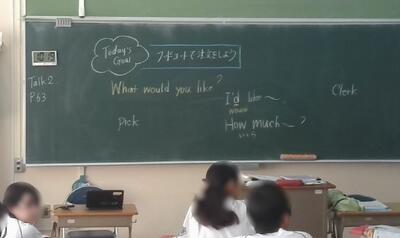 Today's
Goal
フードコートで注文をしよう
Talk 2
P.63
What would you like?
I'd like〜
would
Clerk
Pick
How much〜?
いくら